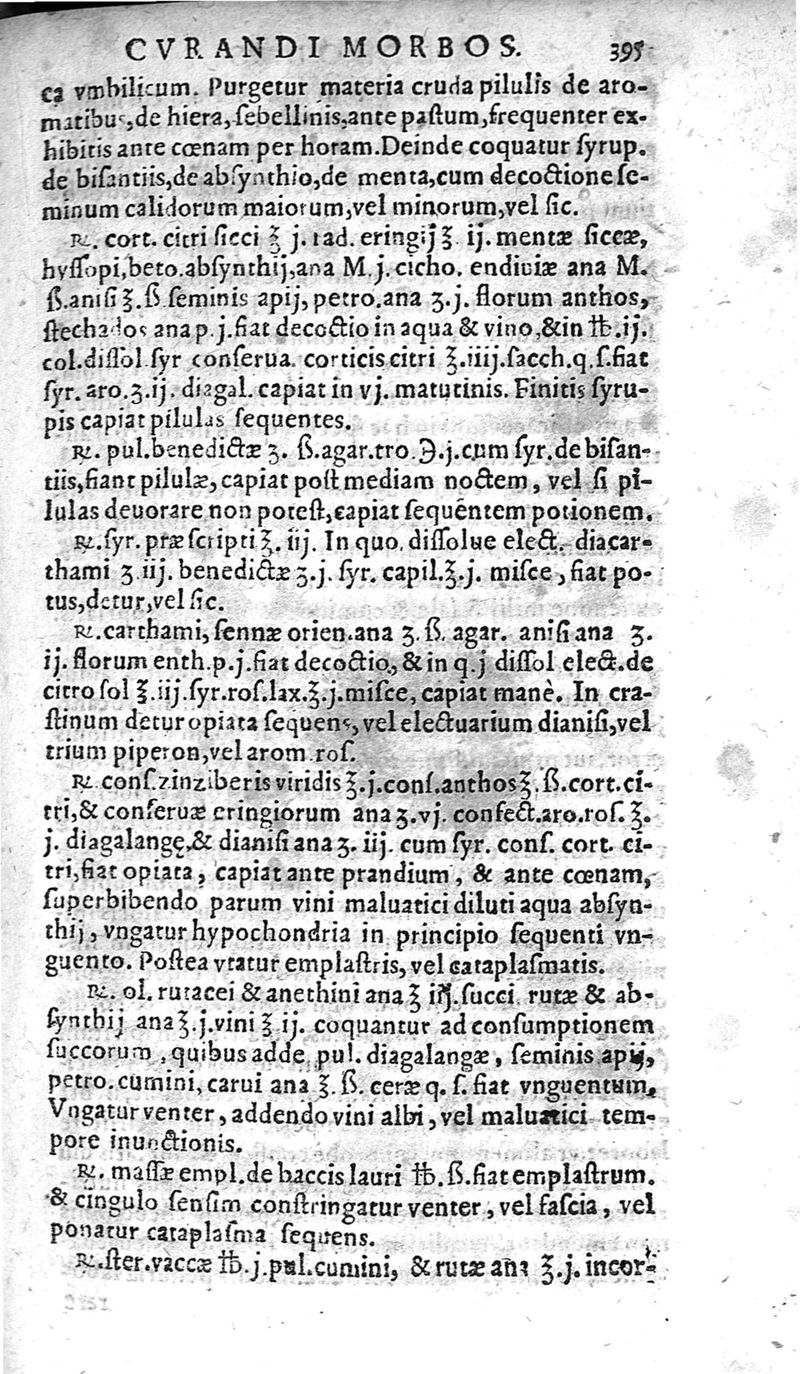 CVRANDI MORBOS. 395
ca vmbilicum. Purgetur materia cruda pilulis de aro-
matibus, de hiera, ſebellinis, ante paſtum, frequenter ex-
hibitis ante cœnam per horam. Deinde coquatur ſyrup.
de biſantiis, de abſynthio, de menta, cum decoctione ſe-
minum calidorum maiorum, vel minorum, vel ſic.
℞. cort. citri ſicci ℥ j. rad. eringij ℥ ij. mentæ ſiccæ,
hyſſopi, beto. abſynthij, ana M. j. cicho. endiuiæ ana M.
ß. aniſi ℥. ß. ſeminis apij, petro. ana ʒ. j. florum anthos,
ſtechados ana p. j. fiat decoctio in aqua & vino, & in ℔. ij.
col. diſſol ſyr conſerua. corticis citri ℥. iiij. ſacch. q. ſ. fiat
ſyr. aro. ʒ. ij. diagal. capiat in vj. matutinis. Finitis ſyru-
pis capiat pilulas ſequentes.
℞. pul. benedictæ ʒ. ß. agar. tro. ℈. j. cum ſyr. de biſan-
tiis, fiant pilulæ, capiat poſt mediam noctem, vel ſi pi-
lulas deuorare non poteſt, capiat ſequentem potionem.
℞. ſyr. præſcripti ℥. iij. In quo. diſſolue elect. diacar-
thami ʒ iij. benedictæ ʒ. j. ſyr. capil. ℥. j. miſce, fiat po-
tus, detur, vel ſic.
℞. carthami, ſennæ orien. ana ʒ. ß. agar. aniſi ana ʒ.
ij. florum enth. p. j. fiat decoctio, & in q. j diſſol elect. de
citro ſol ℥. iij. ſyr. roſ. lax. ℥. j. miſce, capiat manè. In cra-
ſtinum detur opiata ſequens, vel electuarium dianiſi, vel
trium piperon, vel arom. roſ.
℞ conſ. zinziberis viridis ℥. j. conſ. anthos ℥. ß. cort. ci-
tri, & conſeruæ eringiorum ana ʒ. vj. confect. aro. roſ. ℥.
j. diagalangę, & dianiſi ana ʒ. iij. cum ſyr. conſ. cort. ci-
tri, fiat opiata, capiat ante prandium, & ante cœnam,
ſuperbibendo parum vini maluatici diluti aqua abſyn-
thij, vngatur hypochondria in principio ſequenti vn-
guento. Poſtea vtatur emplaſtris, vel cataplaſmatis.
℞. ol. rutacei & anethini ana ℥ iij. ſucci. rutæ & ab-
ſynthij ana ℥. j. vini ℥ ij. coquantur ad conſumptionem
ſuccorum, quibus adde pul. diagalangæ, ſeminis apij,
petro. cumini, carui ana ℥. ß. ceræ q. ſ. fiat vnguentum.
Vngatur venter, addendo vini albi, vel maluatici tem-
pore inunctionis.
℞. maſſæ empl. de baccis lauri ℔. ß. fiat emplaſtrum.
& cingulo ſenſim conſtringatur venter, vel faſcia, vel
ponatur cataplaſma ſequens.
℞. ſter. vaccæ ℔. j. pul. cumini, & rutæ ana ℥. j. incor-